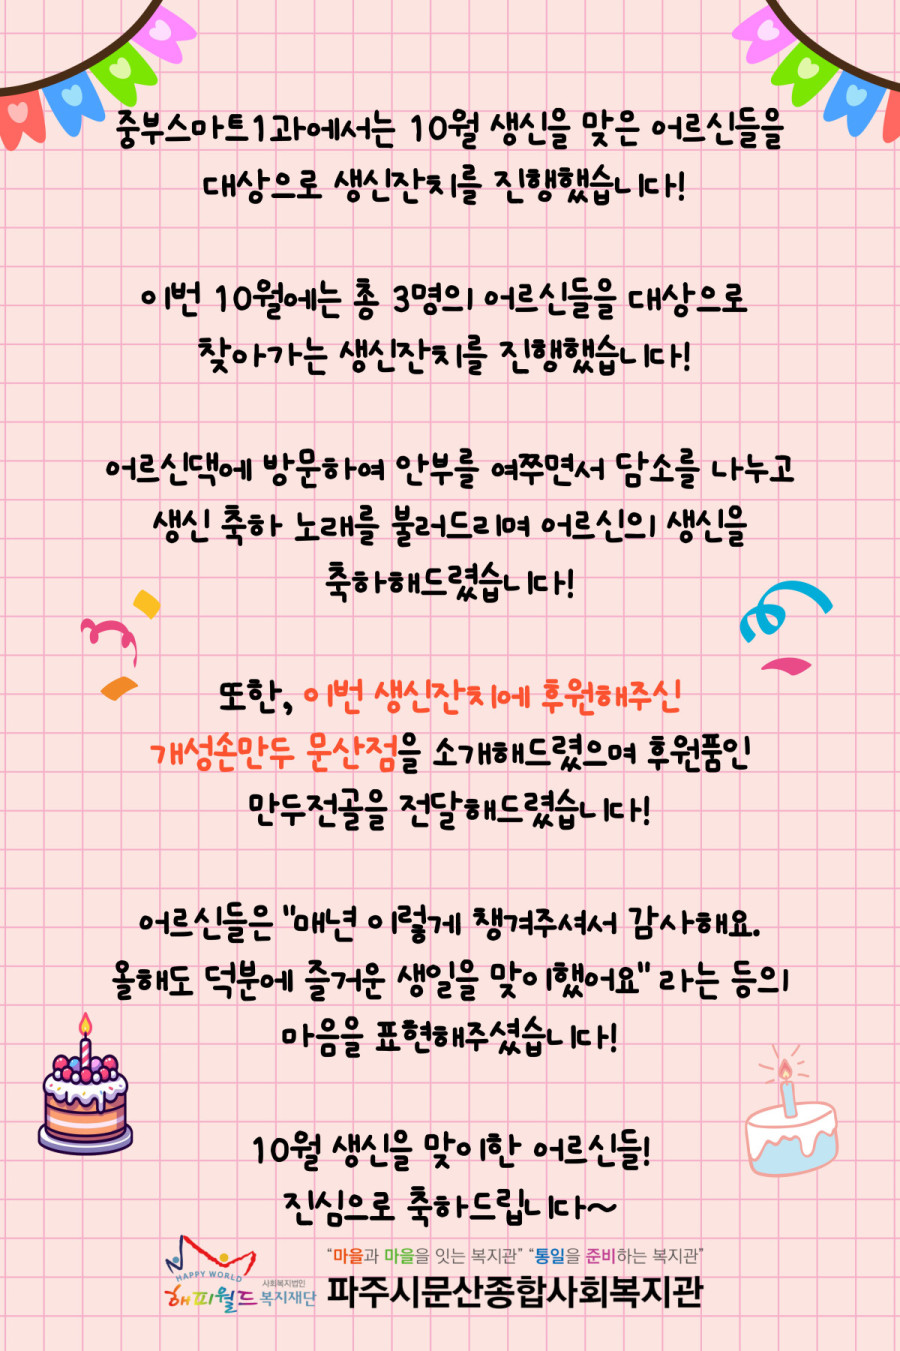 중부스마트1과에서는 10월 생신을 맞은 어르신들을
대상으로 생신잔치를 진행했습니다!
이번 10월에는 총 3명의 어르신들을 대상으로
찾아가는 생신잔치를 진행했습니다!
어르신댁에 방문하여 안부를 여쭈면서 담소를 나누고
생신 축하 노래를 불러드리며 어르신의 생신을
축하해드렸습니다!
또한, 이번 생신잔치에 후원해주신
개성손만두 문산점을 소개해드렸으며 후원품인
만두전골을 전달해드렸습니다!
어르신들은 "매년 이렇게 챙겨주셔서 감사해요.
올해도 덕분에 즐거운 생일을 맞이했어요" 라는 등의
마음을 표현해주셨습니다!
10월 생신을 맞이한 어르신들!
진심으로 축하드립니다~
HAPPY WORLD
사회복지법인
해피월드 복지재단
“마을과 마을을 잇는 복지관” “통일을 준비하는 복지관”
파주시문산종합사회복지관